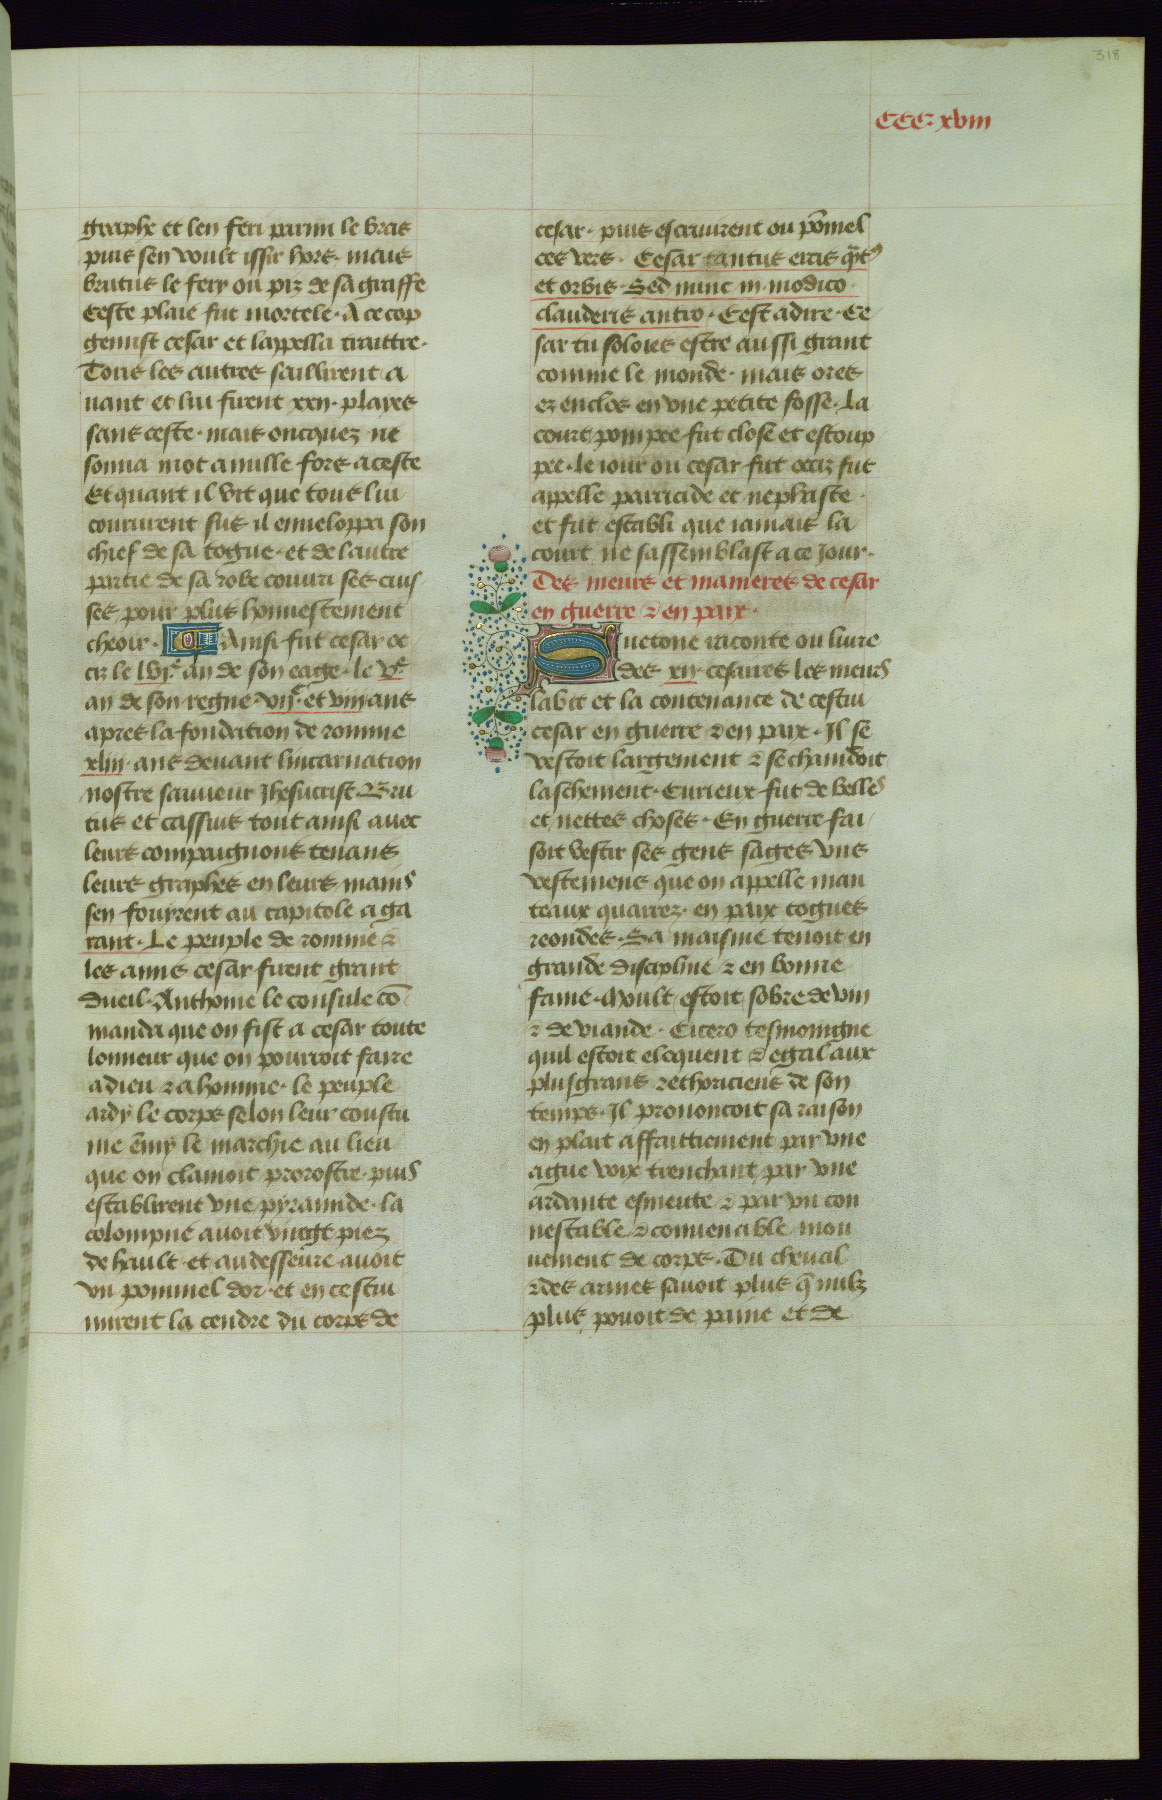 318
CCC xviii
graphe et len feri parmi le bras
puis sen voult issir hors· mais
brutus le fery ou piz de sa graffe
Ceste plaie fut mortele· A ce cop
gemist cesar et lappella traittre·
Tous les autres saillirent a
uant et lui firent xxii· playes
sans ceste· mais oncquez ne
sonna mot a nulle fors a ceste
Et quant il vit que tous lui
coururent sus il enueloppa son
chief de sa togue· et de lautre
partie de sa robe couuri ses cuis
ses pour plus honnestement
cheoir· Ainsi fut cesar oc
cis le lvie an de son eage· le ve
an de son regne· viie et viii ans
apres la fondation de romme
xliii· ans deuant lincarnation
nostre sauueur Jhesucrist· Bru
tus et cassius tout ainsi auec
leurs compaignons tenans
leurs graphes en leurs mains
sen fouyrent au capitole a ga
rant· Le peuple de romme &
les amis cesar firent grant
dueil· Anthoine le consule cō
manda que on fist a cesar toute
lonneur que on pourroit faire
a dieu & a homme· le peuple
ardy le corps selon leur coustu
me ēmy le marchie au lieu
que on clamoit prorostre· puis
establirent vne pyramide· la
colompne auoit vingt piez
de hault· et au desseure auoit
vn pommel dor· et en cestui
mirent la cendre du corps de
cesar· puis escriuirent ou pōmel
ces vers· Cesar tantus eras qͣtꝰ
et orbis· Sed nunc in modico·
clauderis antro· Cest adire· Ce
sar tu soloies estre aussi grant
comme le monde· mais ores
ez enclos en vne petite fosse· La
court pompee fut close et estoup
pee· le iour ou cesar fut occiz fut
appelle parricide et nephaste·
et fut establi que iamais la
court ne sassemblast a ce Jour·
Des meurs et manieres de cesar
en guerre & en paix·
Suetone raconte ou liure
des xii· cesaires les meurs
labit et la contenance de cestui
cesar en guerre & en paix· Il se
vestoit largement & se chaindoit
laschement· Curieux fut de belles
et nettes choses· En guerre fai
soit vestir ses gens sages vns
vestemens que on appelle man
teaux quarrez· en paix togues
reondes· Sa maisnie tenoit en
grande discipline & en bonne
fame· Moult estoit sobre de vin
& de viande· Cicero tesmoingne
quil estoit eloquent & egal aux
plus grans rethoriciens de son
temps· Il prononcoit sa raison
en plait affaittiement par vne
ague voix trenchant par vne
ardante esmeute & par vn con
nestable & conuenable mou
uement de corps· Du cheual
& des armes sauoit plus q̄ nulz
plus pouoit de paine et de